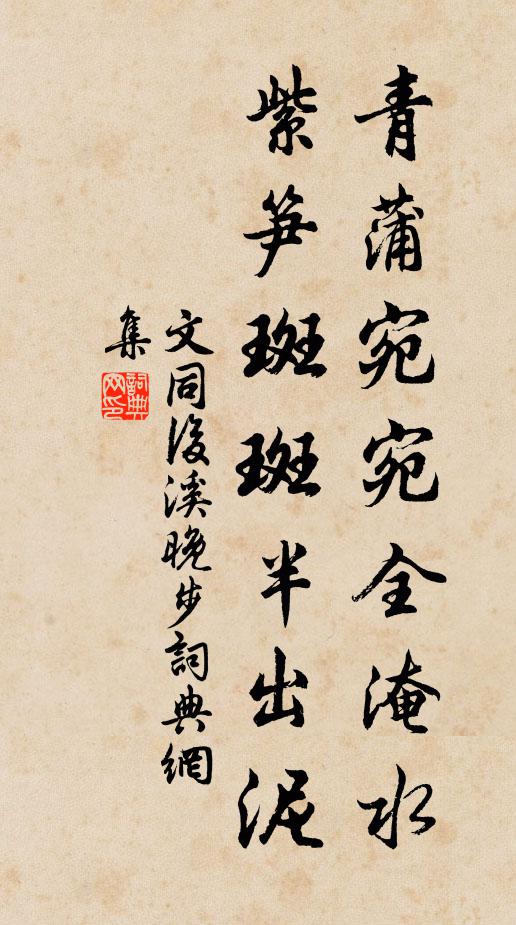 青蒲宛宛全淹水
紫笋斑斑半出泥
文同後溪晚步詞典網
集
詞典网印